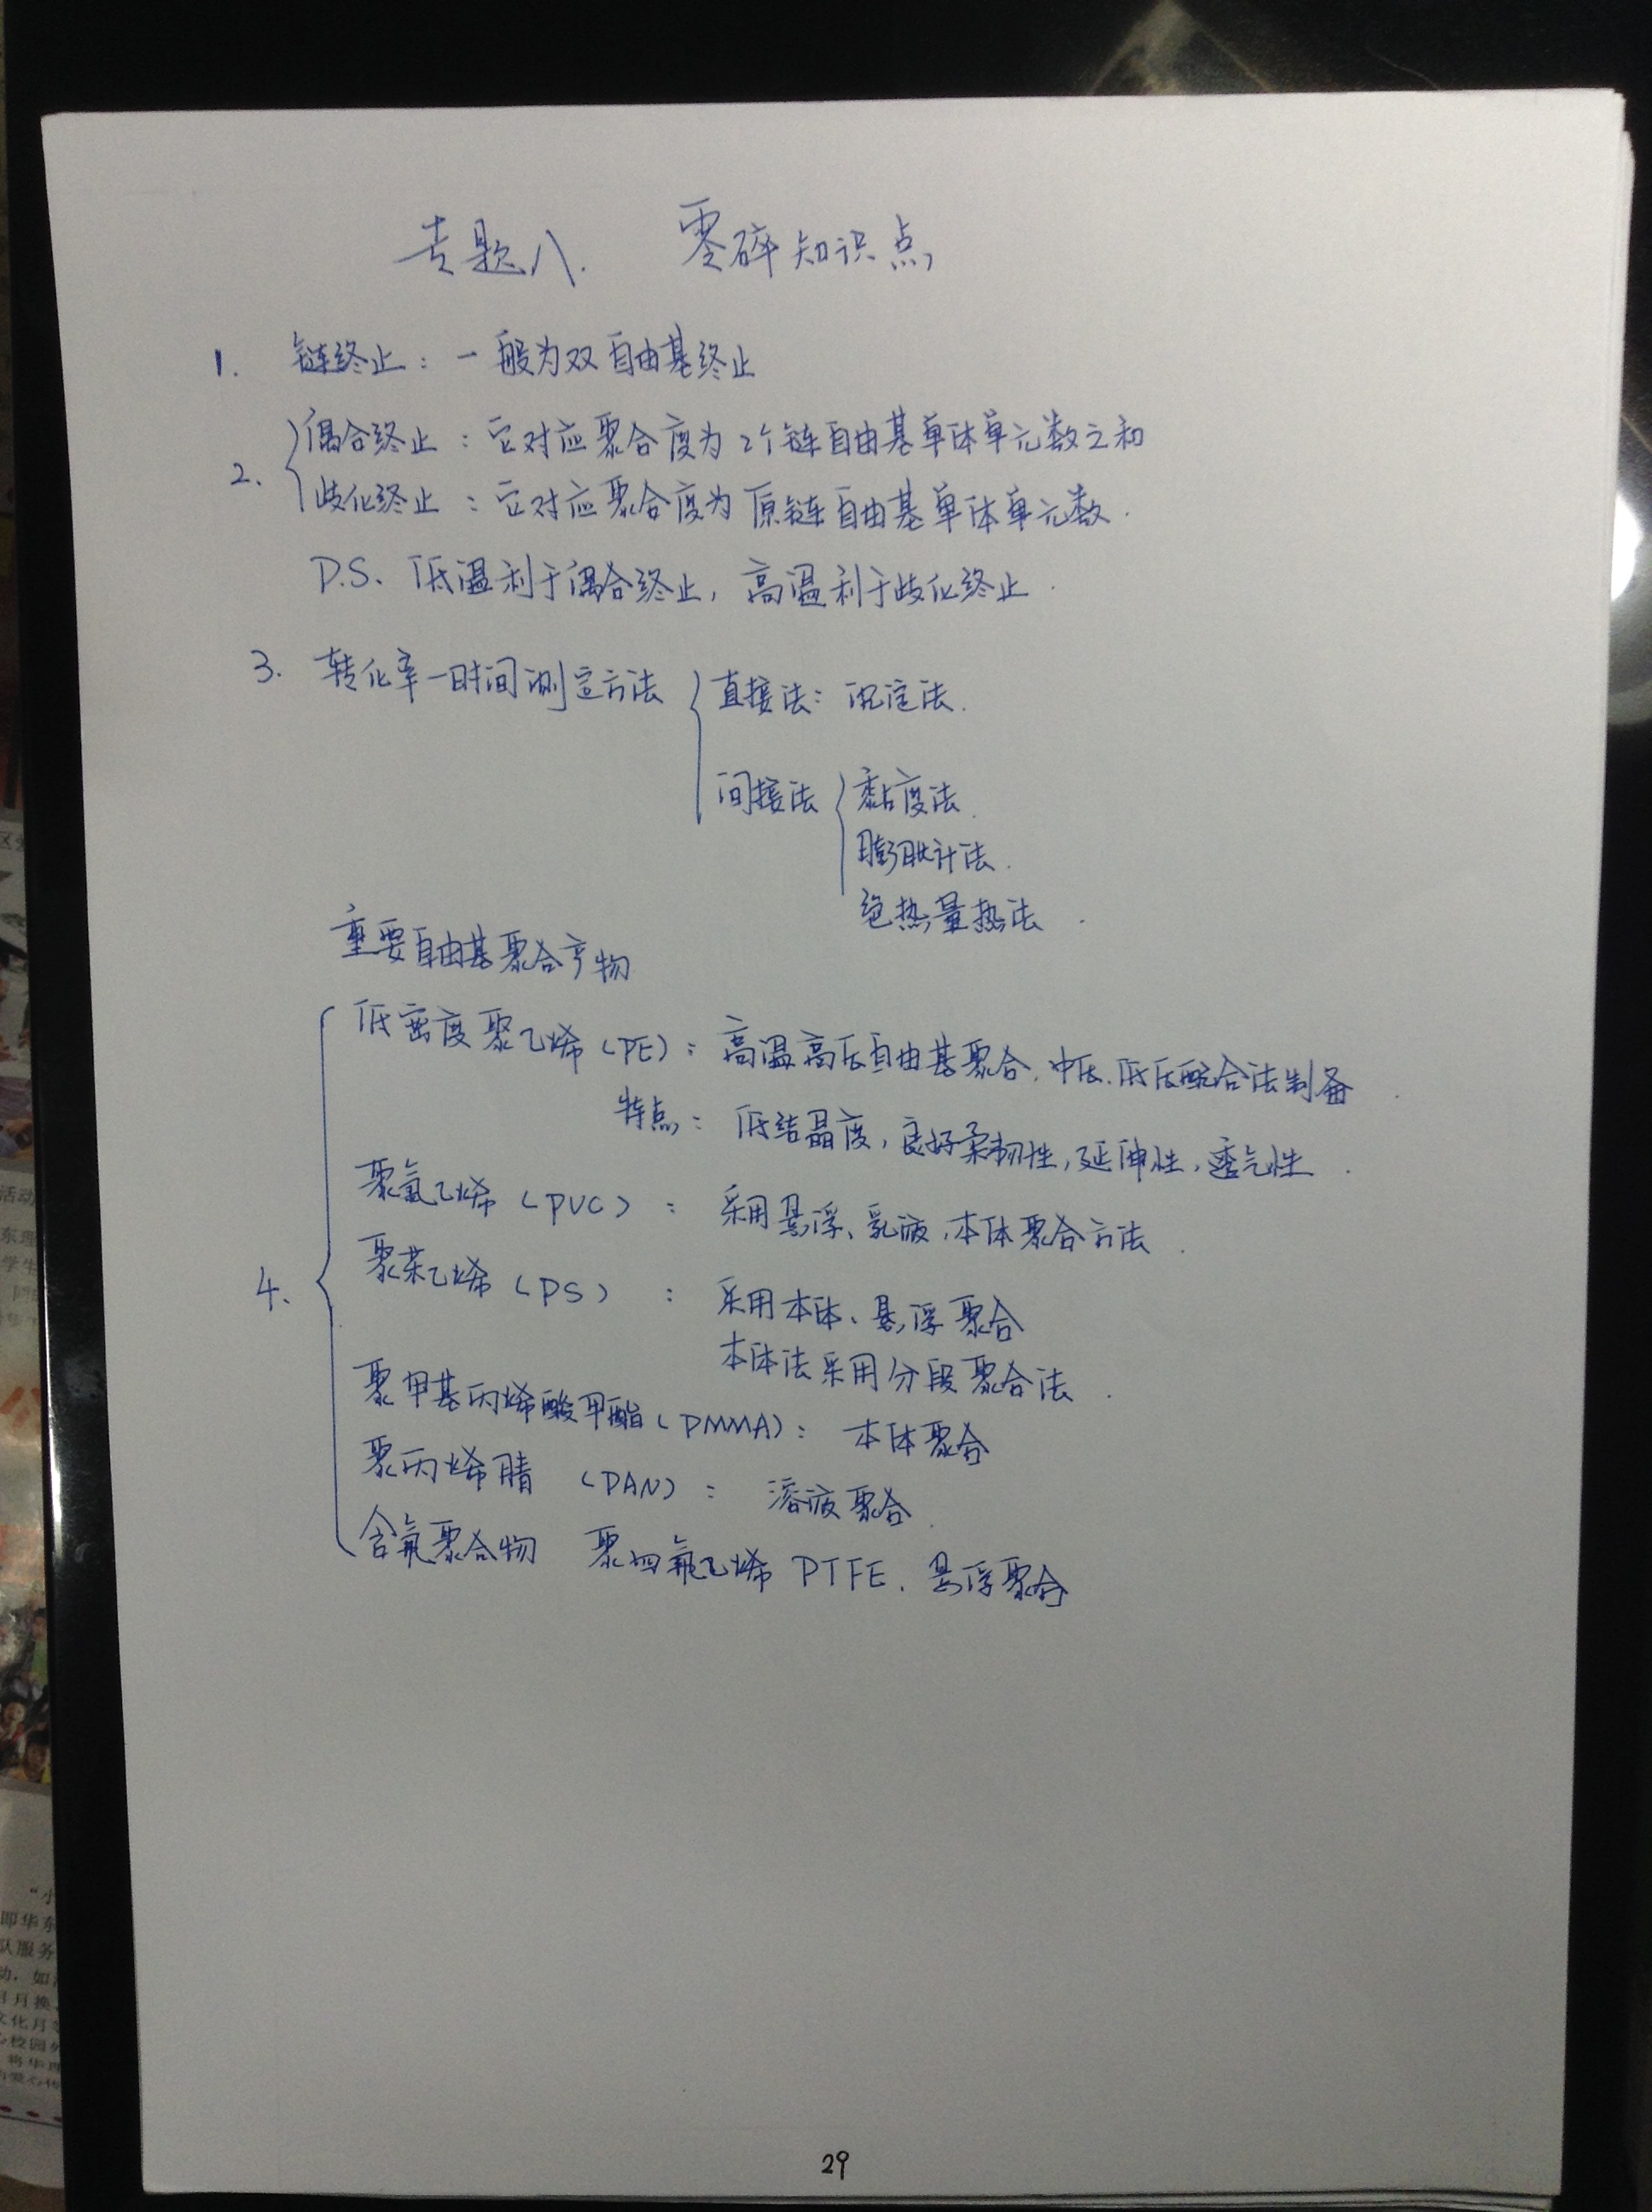 专题八. 零碎知识点
1. 链终止：一般为双自由基终止
偶合终止：它对应聚合度为2个链自由基单体单元数之和
2.
歧化终止：它对应聚合度为原链自由基单体单元数.
P.S. 低温利于偶合终止，高温利于歧化终止.
3. 转化率—时间测定方法 直接法：沉淀法.
间接法 黏度法.
膨胀计法.
绝热量热法.
重要自由基聚合产物
低密度聚乙烯(PE)：高温高压自由基聚合.中压.低压配合法制备.
特点：低结晶度,良好柔韧性,延伸性,透气性.
聚氯乙烯(PVC)：采用悬浮、乳液.本体聚合方法.
4.
聚苯乙烯(PS)：采用本体、悬浮聚合
本体法采用分段聚合法.
聚甲基丙烯酸甲酯(PMMA)：本体聚合
聚丙烯腈(PAN)：溶液聚合.
含氟聚合物 聚四氟乙烯 PTFE. 悬浮聚合
29
活动
东理
学生
即华东
队服务
动，如
月月换
文化月
校园